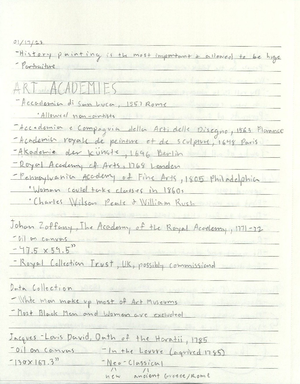 01/17/23
- History painting is the most important & allowed to be huge
- Portraiture
ART ACADEMIES
- Accademia di San Luca, 1551 Rome
• Allowed non-
- Accademia e Compagnia delle Arti delle Disegno, 1563 Florence
- Académie royale de peinture et de sculpture, 1648 Paris
- Akademie der Künste, 1696 Berlin
- Royal Academy of Arts, 1768 London
- Pennsylvania Academy of Fine Arts, 1805 Philadelphia
• Women could take classes in 1860s
• Charles Wilson Peale & William Rush
Johan Zoffany, The Academy of the Royal Academy, 1771-72
- Oil on canvas
- 47.5 x 59.5"
- Royal Collection Trust, UK, possibly commissioned
Data Collection
- White men make up most of Art Museums
- Most Black Men and Women are excluded
Jacques-Louis David, Oath of the Horatii, 1785
- Oil on Canvas - In the Louvre (aquired 1785)
- 130 x 167.3" - Neo-Classical
new ancient Greece/Rome